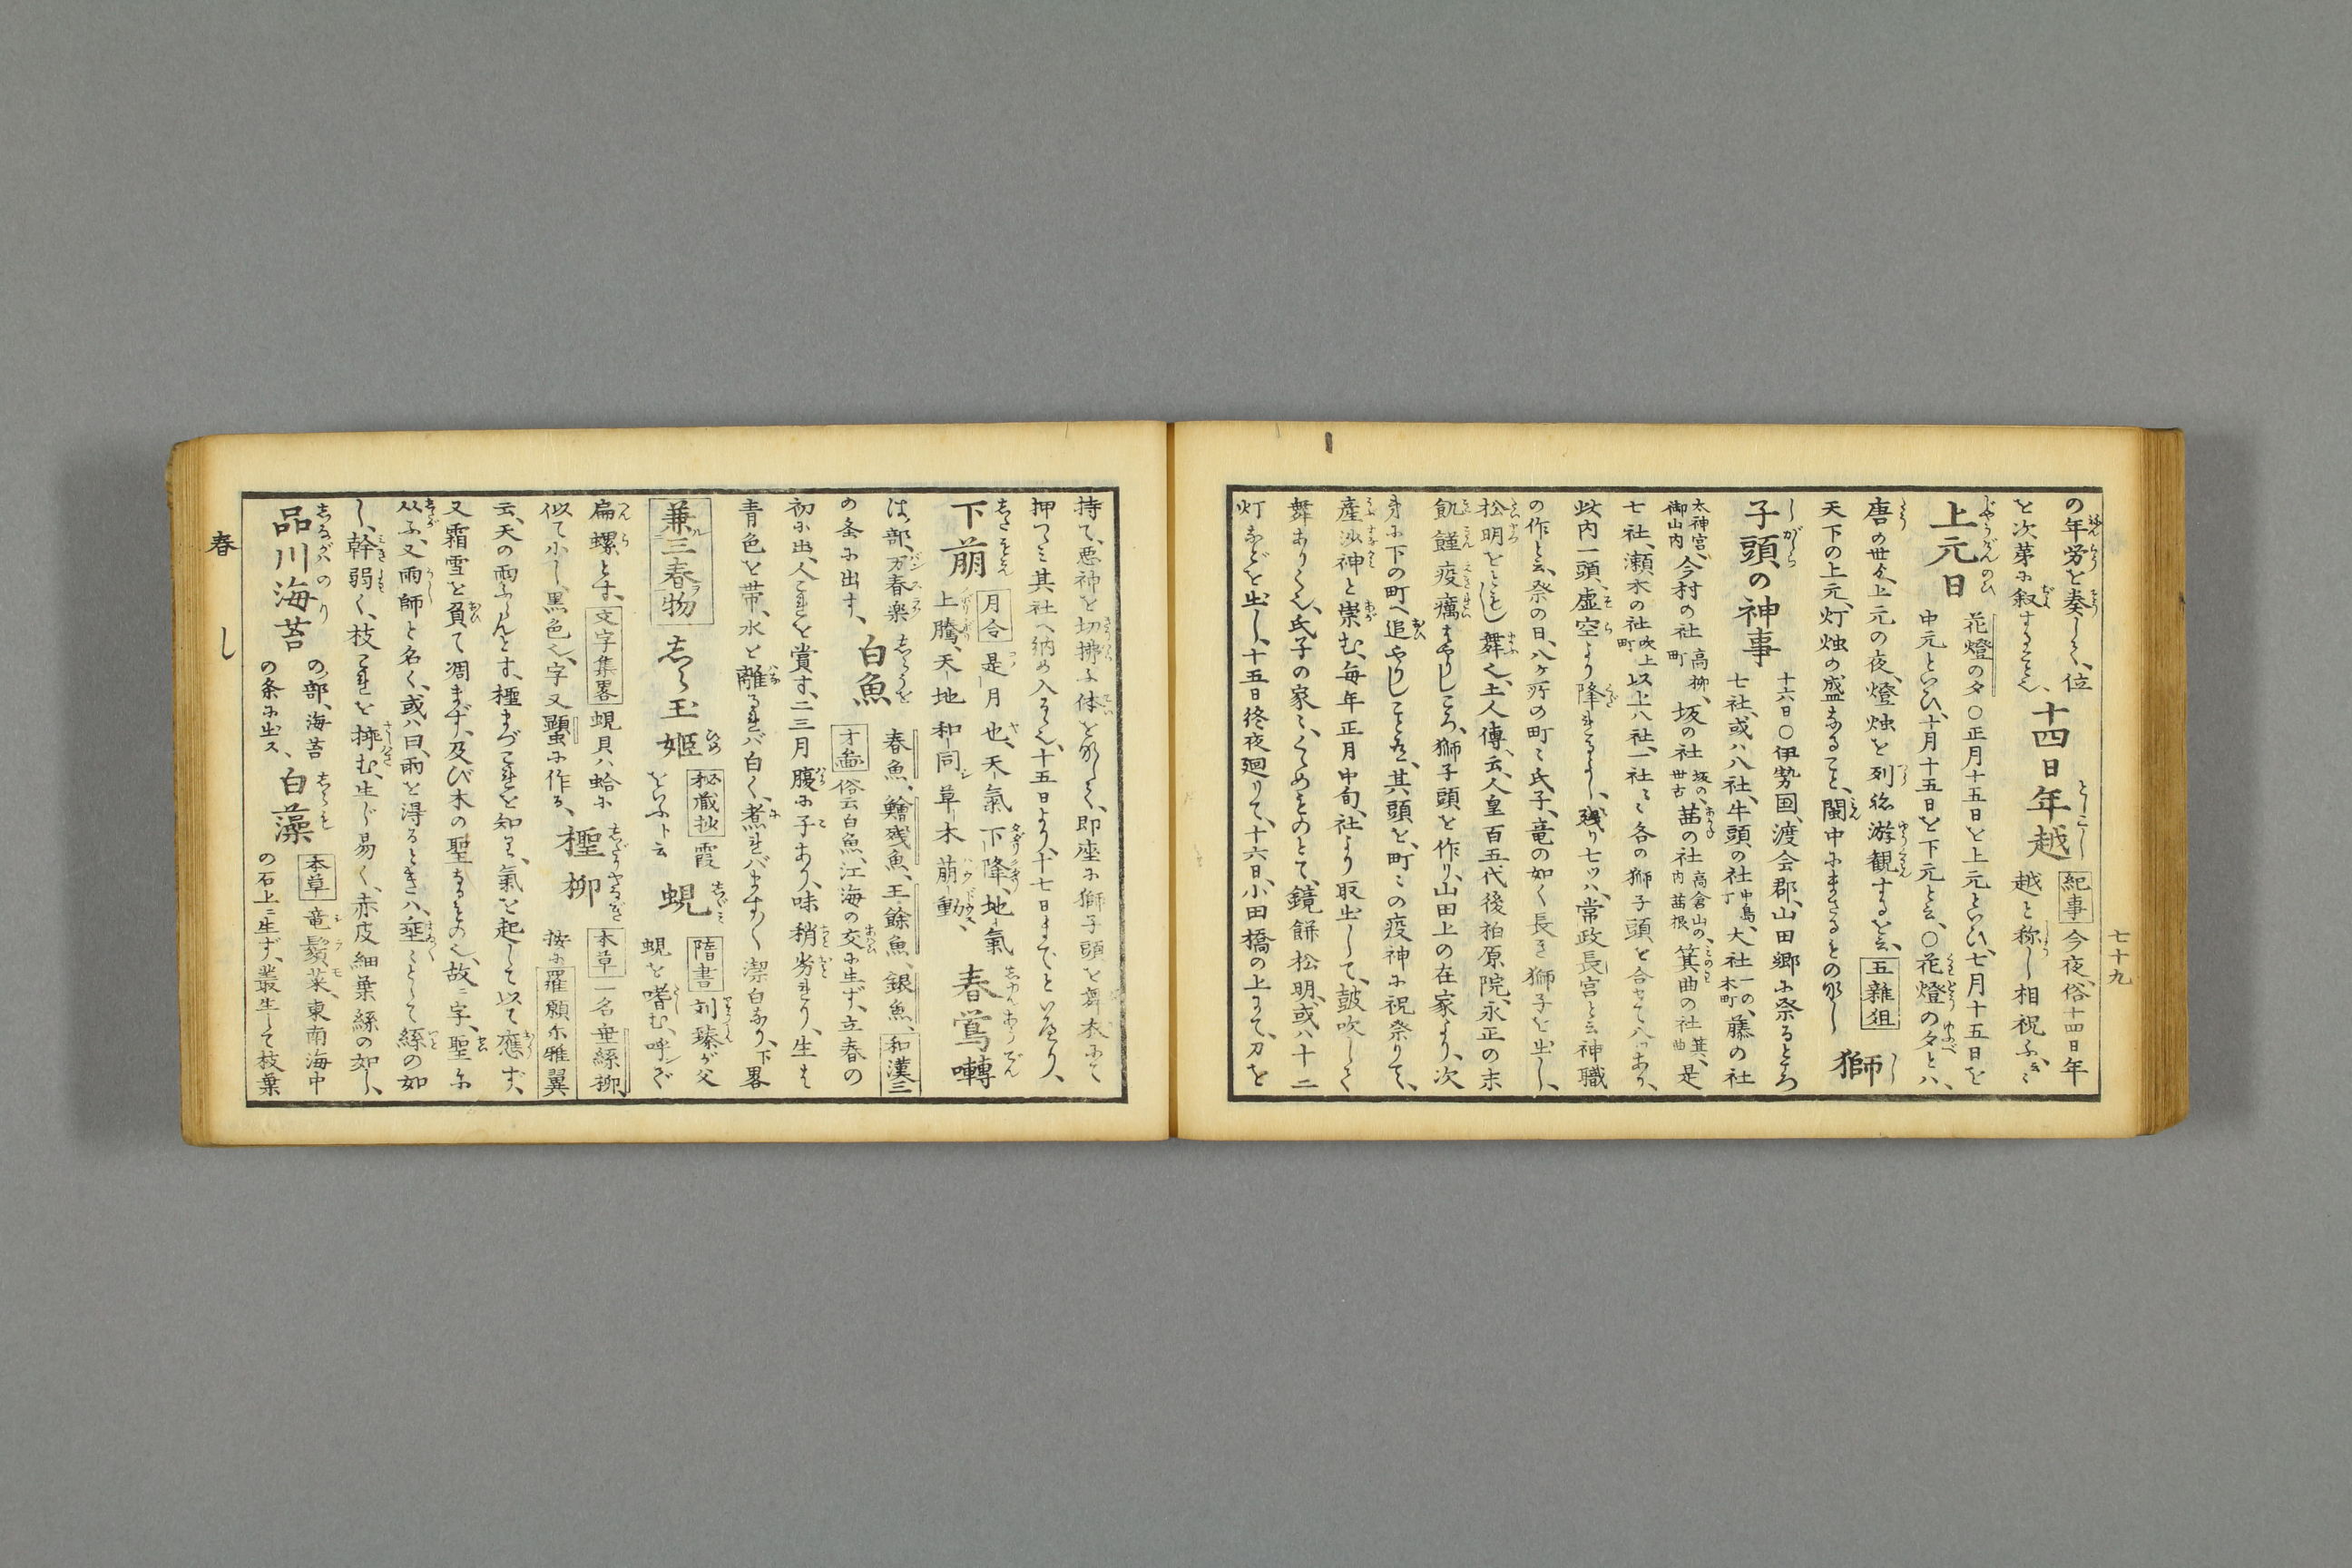 七十九
の年労を奏して、位
を次第に叙することし、
十四日年越
紀事 今夜、俗十四日年
越と称し相祝ふ、
上元日
花燈の夕〇正月十五日を上元といひ、七月十五日を
中元といひ、十月十五日を下元と云、〇花燈の夕とハ、
唐の世、上元の夜、燈烛を列ね游観するを云、五雑俎
天下の上元、灯烛の盛なること、閩中にまさるもの那し
獅
子頭の神事
十六日〇伊勢国、渡会郡、山田郷に祭るところ
七社、或ハ八社、牛頭の社中島、大社一の木町、藤の社
太神宮御山内、今村の社高柳町、坂の社坂の世古、茜の社高倉山の内茜根、箕曲の社箕曲、是
七社、瀬木の社吹上町以上八社、一社〻各の獅子頭を合せて八ツあり、
此内一頭、虚空より降れるよし、残り七ツハ、常政長官と云神職
の作と云、祭の日、八ケ所の町〻氏子、竜の如く長き獅子を出し、
松明をともし舞也、土人傳云、人皇百五代後柏原院、永正の末
飢饉疫癘はやりしころ、獅子頭を作り、山田上の在家より、次
第に下の町へ追やりしこと有、其頭を、町〻の疫神に祝祭りて、
産沙神と崇む、毎年正月中旬、社より取出して、鼓吹して
舞あり也、氏子の家〻、くめものとて、鏡餅松明、或ハ十二
灯などを出し、十五日終夜廻りて、十六日、小田橋の上にて、刀を
持て、悪神を切拂ふ体を那して、即座に獅子頭を舞衣にて
押つゝミ其社へ納め入る也、十五日より、十七日までといへり、
下萠
月令 是月也、天氣下降、地氣
上騰、天地和同、草木萠動、
春鶯囀
は、部、万春楽
の条に出す、
白魚
春魚、鱠残魚、王餘魚、銀魚、和漢三
才圖 俗云白魚、江海の交に生ず、立春の
初に出、人これを賞す、二三月腹に子あり、味稍劣れり、生は
青色を帯、水を離るれバ白く、煮れバますく潔白なり、下畧
兼三春物
志ら玉姫
秘蔵抄 霞
をいふト云
蜆
隋書 劉臻が父
蜆を嗜む、呼ンで
扁螺とす、文字集畧 蜆貝ハ蛤に
似て小し、黒色也、字又䗾に作る、
檉柳
本草 一名垂絲柳
按に羅願尓雅翼
云、天の雨ふらんとす、檉まづこれを知る、氣を起して以て應ず、
又霜雪を負て凋まず、及び木の聖なるもの也、故ニ字、聖に
从ふ、又雨師と名く、或ハ曰、雨を得るときハ、垂〻として絲の如
し、幹弱く、枝これを挿む、生じ易く、赤皮細葉絲の如し、
品川海苔
の、部、海苔
の条に出ス、
白藻
本草 竜鬚菜、東南海中
の石上ニ生ず、叢生して枝葉
春
し